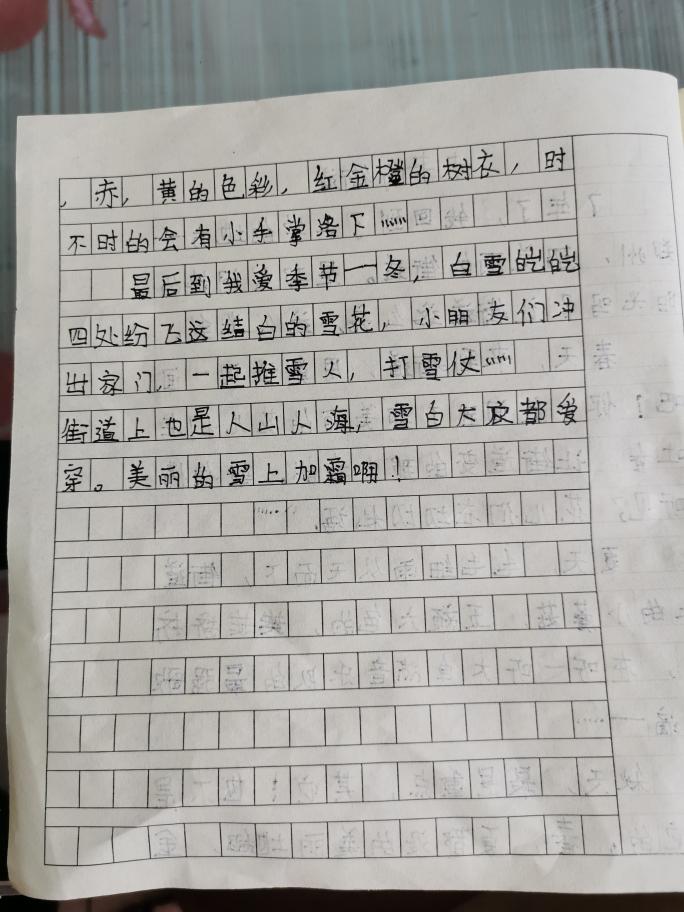 ，赤，黄的色彩，红金橙的树衣，时
不时的会有小手掌洛下……
最后到我爱季节一冬，白雪皑皑
四处纷飞这结白的雪花，小朋友们冲
出家门，一起推雪人，打雪仗……
街道上也是人山人海，雪白大衣都爱
穿。美丽的雪上加霜啊！